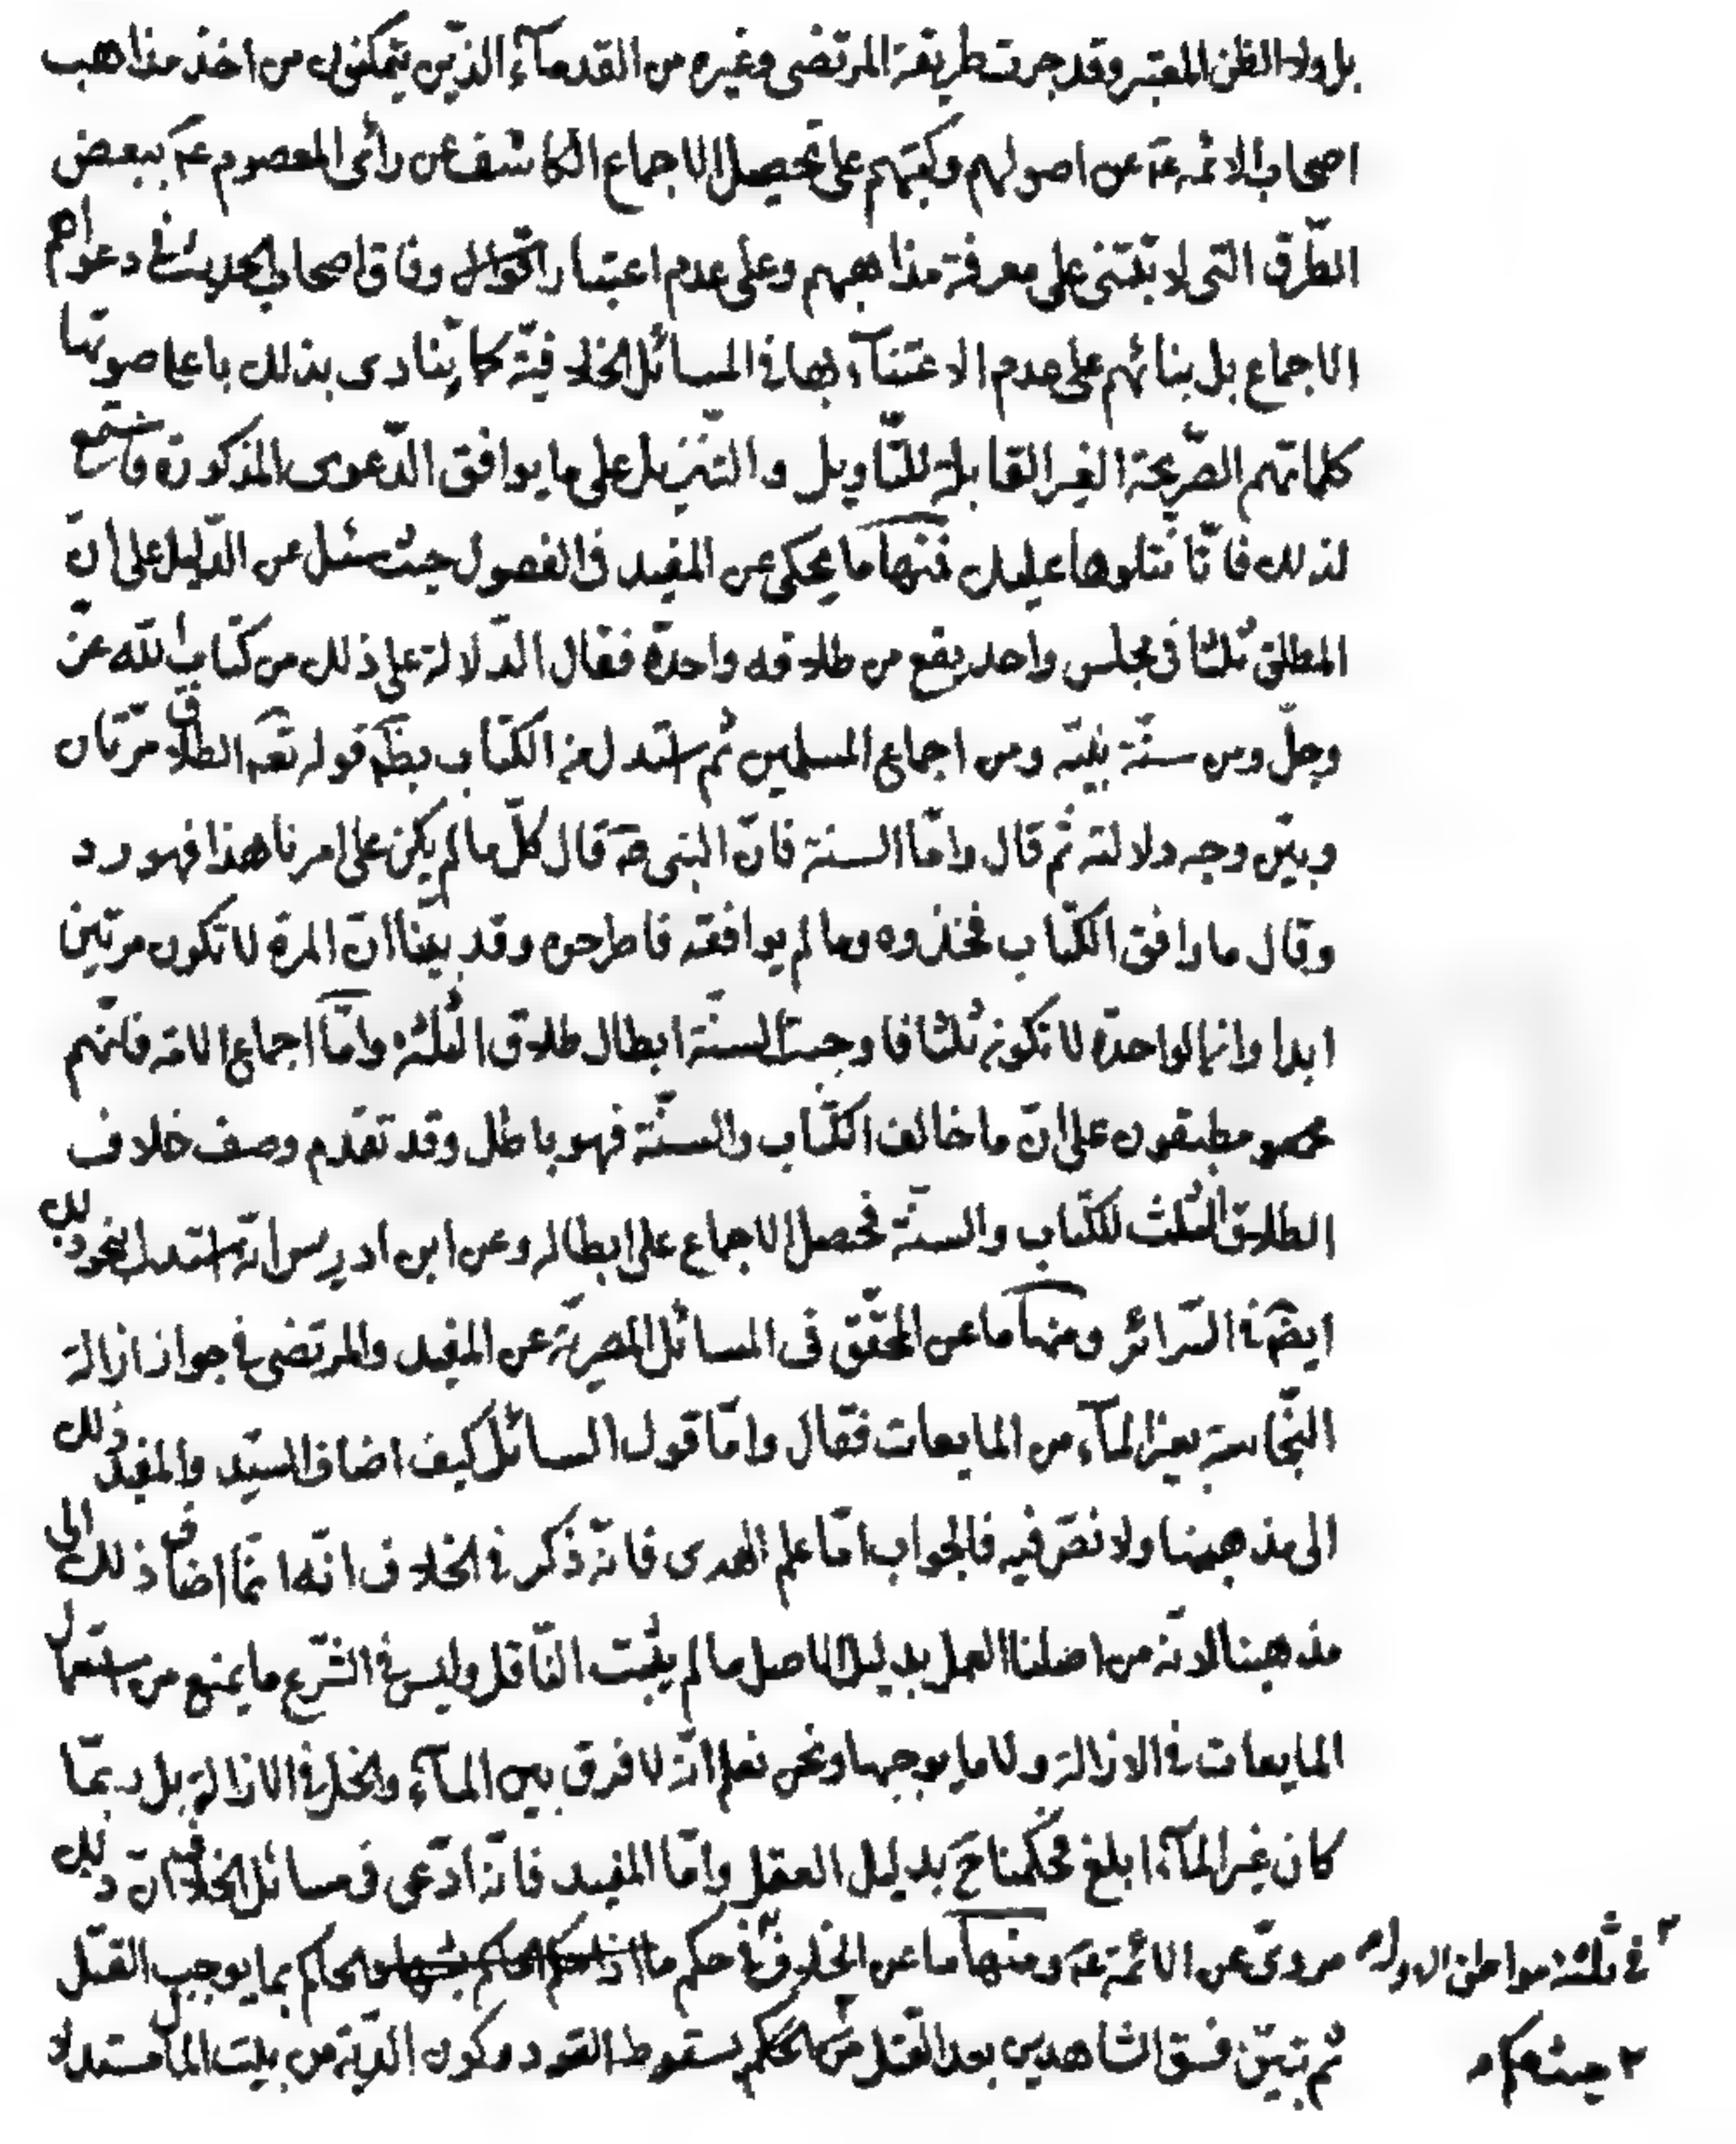 بل ولا الظن المعتبر وقد جرت طريقة المرتضى وغيره من القدمآء الذين يتمكنون من اخذ مذاهب
اصحاب الائمة عم عن اصولهم وكتبهم على تحصيل الاجماع الكاشف عن رأى المعصوم عم ببعض
الطرق التى لا تبتنى على معرفة مذاهبهم وعلى عدم اعتبار وفاق اصحاب الحديث فى دعواهم
الاجماع بل بنائهم على عدم الاعتنآء بها فى المسائل الخلافية كما ينادى بذلك باعلى صوتها
كلماتهم الصريحة الغير القابلة للتاويل والتنزيل على ما يوافق الدعوى المذكورة فاستمع
لذلك فانا نتلوها عليك فمنها ما يحكى عن المفيد فى الفصول حيث سئل عن الدليل على ان
المطلق ثلثا فى مجلس واحد يقع من طلاقه واحدة فقال الدلالة على ذلك من كتاب الله عز
وجل ومن سنة نبيه ومن اجماع المسلمين ثم استدل من الكتاب بظم قوله تعم الطلاق مرتان
وبين وجه دلالته ثم قال واما السنة فان النبى صم قال كل ما لم يكن على امرنا هذا فهو رد
وقال ما وافق الكتاب فخذوه وما لم يوافقه فاطرحوه وقد بينا ان المرة لا تكون مرتين
ابدا وانما الواحدة لا تكون ثلثا فاوجبت السنة ابطال طلاق الثلثة واما اجماع الامة فانهم
مطبقون على ان ما خالف الكتاب والسنة فهو باطل وقد تقدم وصف خلاف
الطلاق الثلث للكتاب والسنة فحصل الاجماع على ابطاله وعن ابن ادريس انه استدل بنحو ذلك
ايضم فى السرائر ومنها ما عن المحقق فى المسائل المصرية عن المفيد والمرتضى فى جواز ازالة
النجاسة بغير المآء من المايعات فقال واما قول السائل كيف اضاف السيد والمفيد ذلك
الى مذهبنا ولا نص فيه فالجواب اما علم الهدى فانه ذكر فى الخلاف انه انما اضاف ذلك الى
مذهبنا لانه من اصلنا العمل بدليل الاصل ما لم يثبت الناقل وليس فى الشرع ما يمنع من استعمال
المايعات فى الازالة ولا ما يوجبها ونحن نعلم انه لا فرق بين المآء والخل فى الازالة بل ربما
كان غير المآء ابلغ فحكمنا ح بدليل العقل واما المفيد فانه ادعى فى مسائل الخلاف ان ذلك
مروى عن الائمة عم ومنها ما عن الخلاف فى حكم ما بما يوجب القتل
فى ثلثة مواطن الاول
ثم تبين فسق الشاهدين بعد القتل بسقوط القود وكون الدية من بيت المال مستدلا
٢ حيث حكم